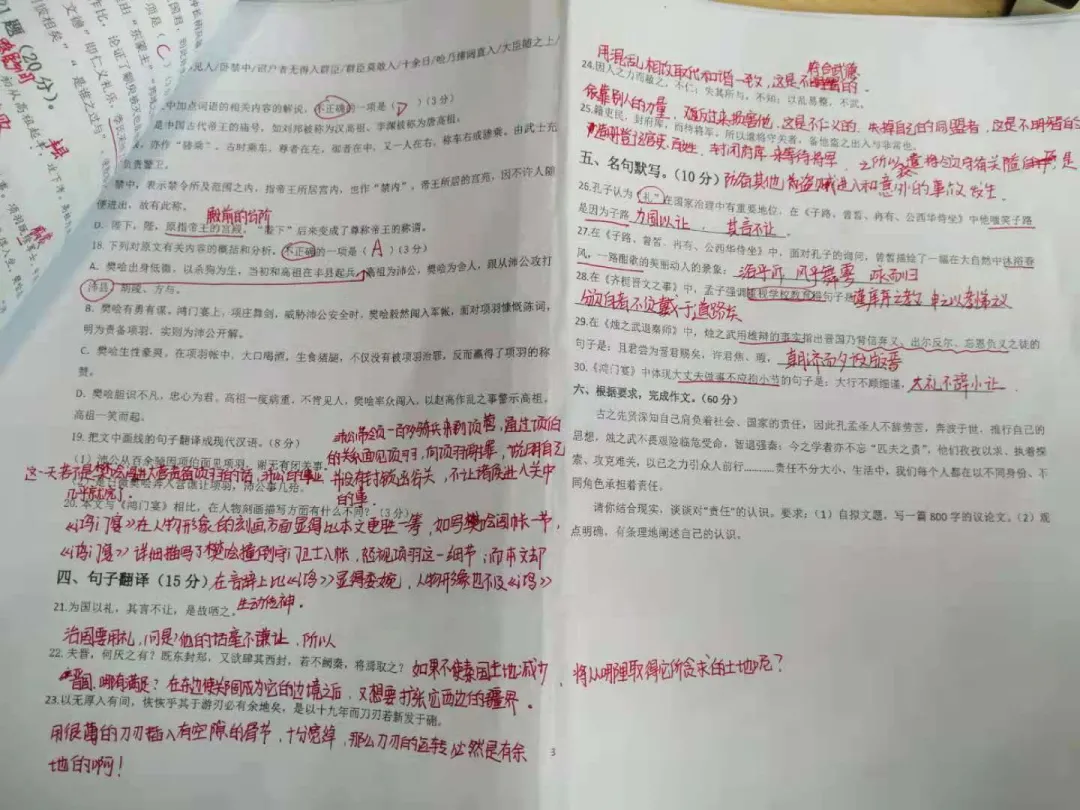 题（20分）。
见人/卧禁中/诏户者无得入群臣/群臣莫敢入/十余日/哙乃排闼直入/大臣随之上/
中加点词语的相关内容的解说，不正确的一项是（D）（3分）
是中国古代帝王的庙号，如刘邦被称为汉高祖，李渊被称为唐高祖。
亦作“陪乘”，古时乘车，尊者在左，御者在中，又一人在右，称车右或骖乘，由武士充
负责警卫。
禁中，表示禁令所及范围之内，指帝王所居宫内，也作“禁内”，帝王所居的宫苑，因不许人随
便进出，故有此称。
殿前的台阶
D．陛下，陛，原指帝王的宫殿，“陛下”后来变成了尊称帝王的称谓。
18. 下列对原文有关内容的概括和分析，不正确的一项是（A）（3分）
A．樊哙出身低微，以杀狗为生，当初和高祖在丰县起兵，高祖为沛公，樊哙为舍人，跟从沛公攻打
沛县、胡陵、方与。
B．樊哙有勇有谋，鸿门宴上，项庄舞剑，威胁沛公安全时，樊哙毅然闯入军帐，面对项羽慷慨陈词，
明为责备项羽，实则为沛公开解。
C．樊哙生性豪爽，在项羽帐中，大口喝酒，生食猪腿，不仅没有被项羽治罪，反而赢得了项羽的称
赞。
D．樊哙胆识不凡，忠心为君。高祖一度病重，不肯见人，樊哙率众闯入，以赵高作乱之事警示高祖，
高祖一笑而起。
19. 把文中画线的句子翻译成现代汉语。（8分）
沛公带领一百多骑兵来到项营，通过项伯
的关系面见项羽，向项羽谢罪，说明自己
并没有封锁函谷关，不让诸侯进入关中
的事
（1）沛公从百余骑因项伯面见项羽，谢无有闭关事。
这一天若不是樊哙闯进入营责备项羽的话，沛公的事业
几乎就完了。
20. 本文与《鸿门宴》相比，在人物刻画描写方面有什么不同？（3分）
《鸿门宴》在人物形象的刻画方面显得比本文更胜一筹，如写樊哙闯帐一节，
《鸿门宴》详细描写了樊哙撞倒守门卫士入帐，怒视项羽这一细节；而本文却
四、句子翻译（15分）在言辞上比《鸿》显得委婉，人物形象也不及《鸿》
生动传神。
21.为国以礼，其言不让，是故哂之。
治国要用礼，可是他的话毫不谦让，所以
22. 夫晋，何厌之有？既东封郑，又欲肆其西封，若不阙秦，将焉取之？如果不使秦国土地减少，将从哪里取得它所贪求的土地呢？
晋国，哪有满足？在东边使郑国成为它的边境之后，又想要扩张它西边的疆界。
23.以无厚入有间，恢恢乎其于游刃必有余地矣，是以十九年而刀刃若新发于硎。
用很薄的刀刃插入有空隙的骨节，十分宽绰，那么刀刃的运转必然是有余
地的啊！
用混乱相攻取代和谐一致，这是不符合武德的。
24.因人之力而敝之，不仁；失其所与，不知；以乱易整，不武。
依靠别人的力量，随后过来损害他，这是不仁义的，失掉自己的同盟者，这是不明智的
25.籍吏民，封府库，而待将军。所以遣将守关者，备他盗之出入与非常也。
封闭府库来等待将军，之所以派遣将领守
防备其他的盗贼进入和意外的事故发生。
五、名句默写。（10分）
26.孔子认为“礼”在国家治理中有重要地位，在《子路、曾皙、冉有、公西华侍坐》中他嗤笑子路
是因为子路 为国以让，其言不让。
27.在《子路、曾皙、冉有、公西华侍坐》中，面对孔子的询问，曾皙描绘了一幅在大自然中沐浴春
风，一路酣歌的美丽动人的景象：浴乎沂，风乎舞雩，咏而归
28.在《齐桓晋文之事》中，孟子强调重视学校教育的句子是：谨庠序之教，申之以孝悌之义
颁白者不负戴于道路矣
29.在《烛之武退秦师》中，烛之武用雄辩的事实指出晋国乃背信弃义、出尔反尔、忘恩负义之徒的
句子是：且君尝为晋君赐矣，许君焦、瑕，朝济而夕设版焉
30.《鸿门宴》中体现大丈夫做事不应拘小节的句子是：大行不顾细谨，大礼不辞小让．
六、根据要求，完成作文。（60分）
古之先贤深知自己肩负着社会、国家的责任，因此孔孟圣人不辞劳苦，奔波于世，推行自己的
思想，烛之武不畏艰险临危受命，智退强秦；今之学者亦不忘“匹夫之责”，他们孜孜以求、执着探
索、攻克难关，以己之力引众人前行……责任不分大小，生活中，我们每个人都在以不同身份、不
同角色承担着责任。
请你结合现实，谈谈对“责任”的认识。要求：（1）自拟文题，写一篇800字的议论文。（2）观
点明确，有条理地阐述自己的认识。
3